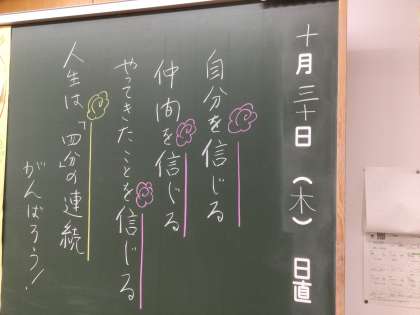 十月三十日(木) 日直
自分を信じる
仲間を信じる
やってきたことを信じる
人生は「四分の連続
がんばろう!